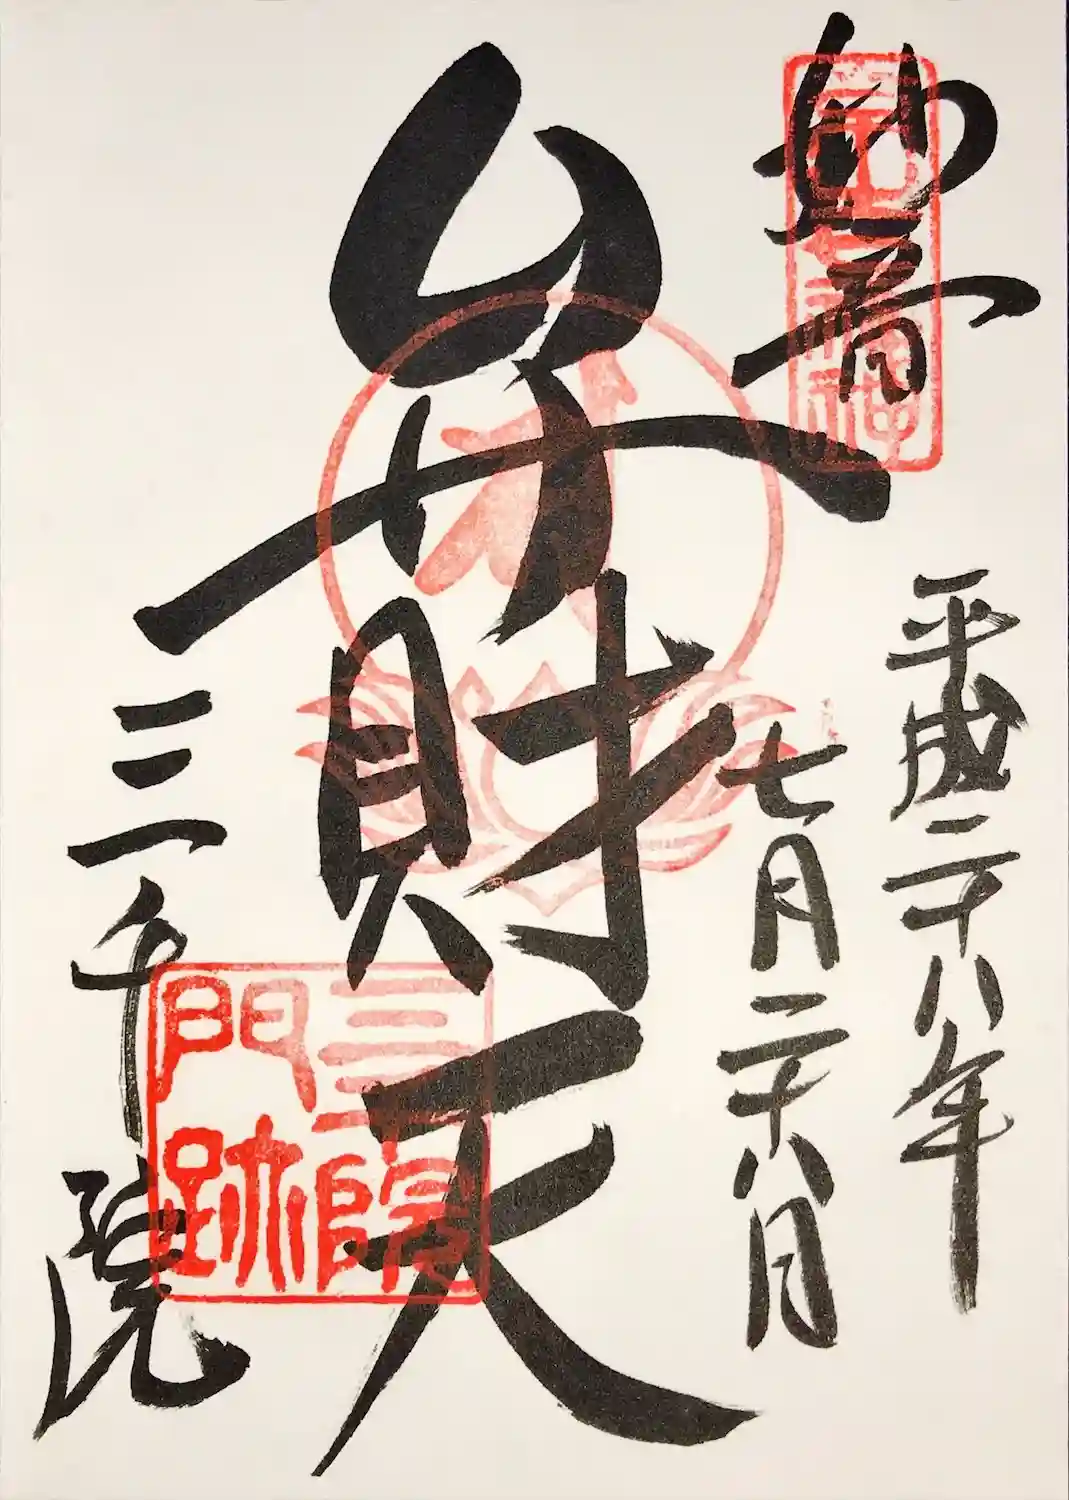 妙音
平成二十八年
七月二十八日
弁財天
三千院
三千院
門跡